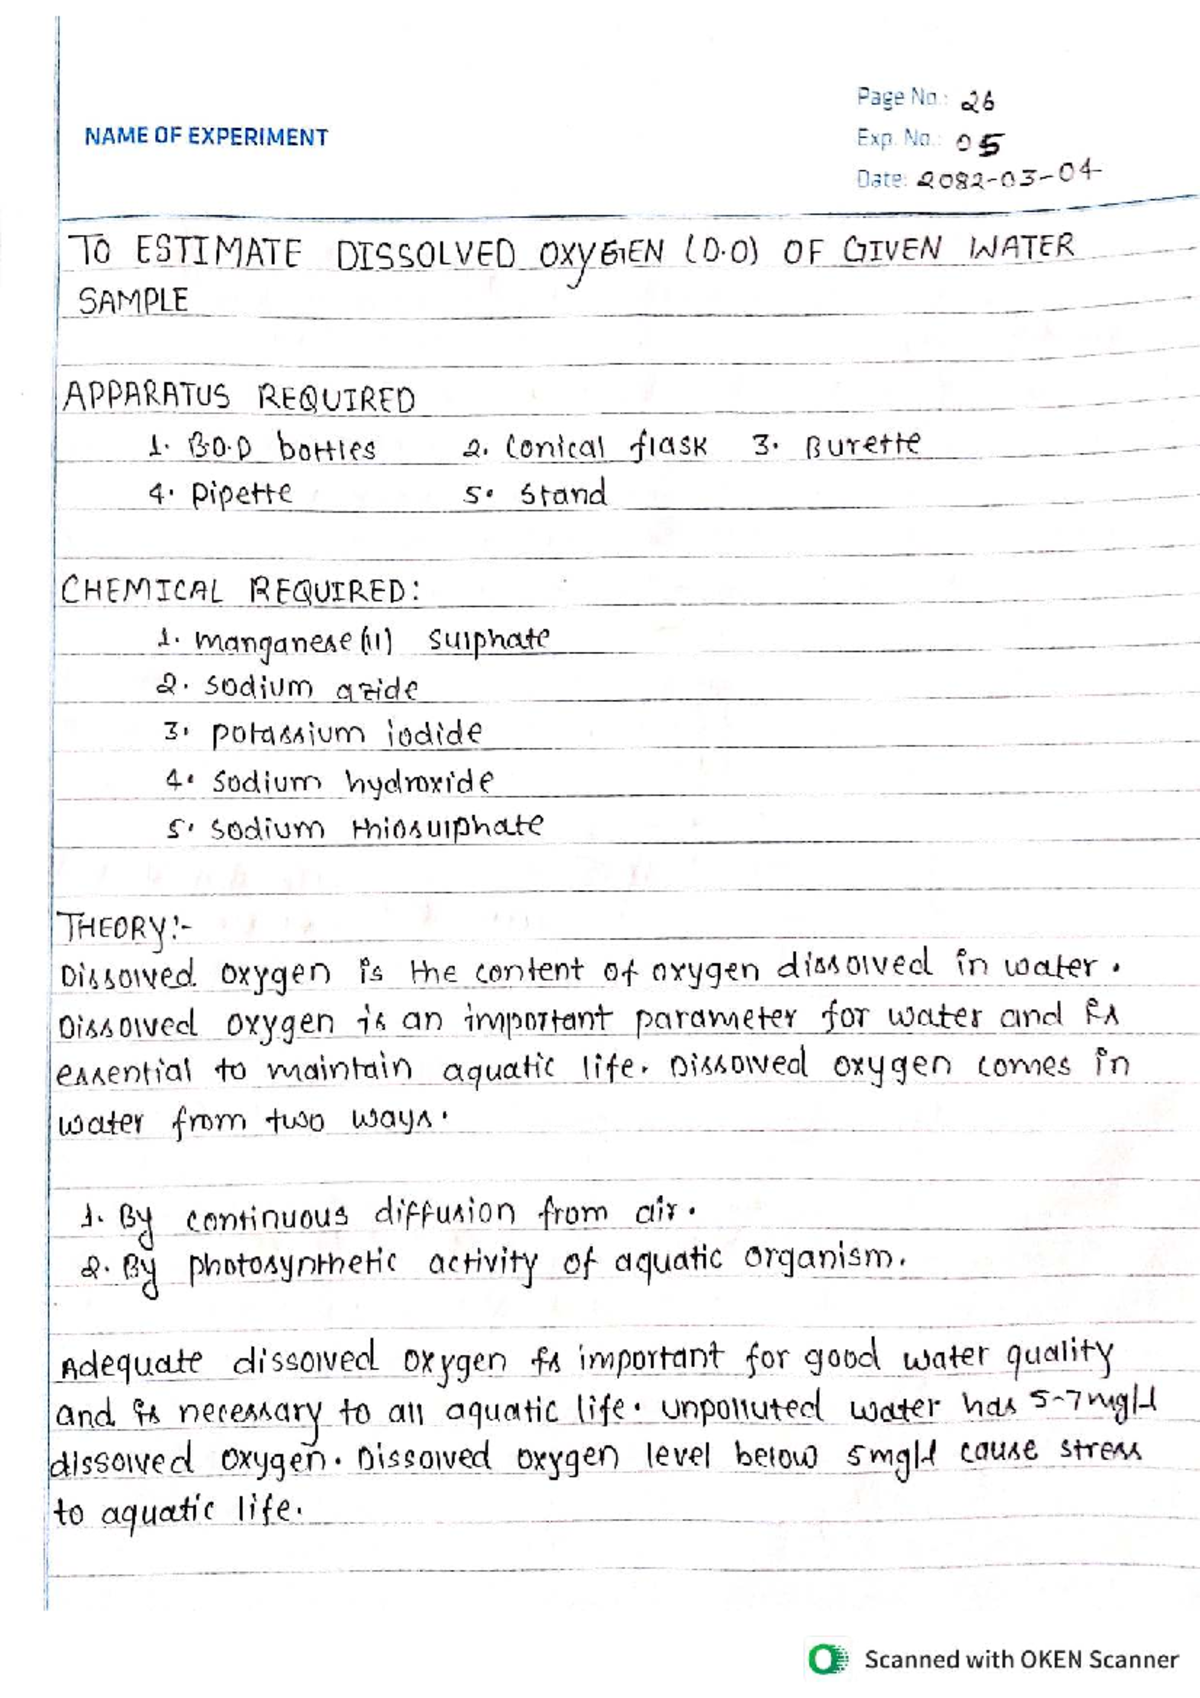 Page No.: 26
NAME OF EXPERIMENT
Exp. No.: 05
Date: 2082-03-04
TO ESTIMATE DISSOLVED OXYGEN (D.O) OF GIVEN WATER
SAMPLE
APPARATUS REQUIRED
1. B.O.D bottles 2. Conical flask 3. Burette
4. Pipette 5. Stand
CHEMICAL REQUIRED:
1. Manganese (II) sulphate
2. Sodium azide
3. potassium iodide
4. Sodium hydroxide
5. Sodium thiosulphate
THEORY:-
Dissolved oxygen is the content of oxygen dissolved in water.
Dissolved oxygen is an important parameter for water and is
essential to maintain aquatic life. Dissolved oxygen comes in
water from two ways.
1. By continuous diffusion from air.
2. By photosynthetic activity of aquatic organism.
Adequate dissolved oxygen is important for good water quality
and is necessary to all aquatic life. Unpolluted water has 5-7mg/l
dissolved oxygen. Dissolved oxygen level below 5mg/l cause stress
to aquatic life.
Scanned with OKEN Scanner